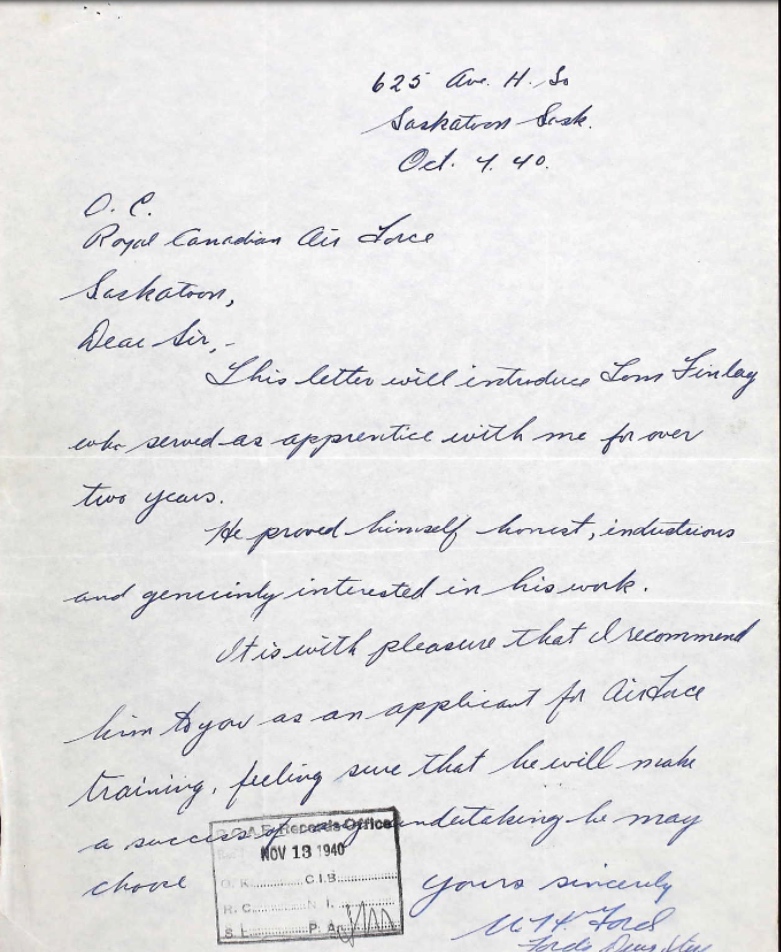 625 Ave. H. So
Saskatoon Sask.
Oct. 4. 40.
O. C.
Royal Canadian Air Force
Saskatoon,
Dear Sir,-
This letter will introduce Tom Finlay
who served as apprentice with me for over
two years.
He proved himself honest, industrious
and genuinly interested in his work.
It is with pleasure that I recommend
him to you as an applicant for Air Force
training, feeling sure that he will make
a success of any undertaking he may
choose
Yours sincerely
Ford
Ford's Drug Store
R.C.A.F. Records Office
NOV 13 1940
O. K. C.I.B.
R. C. N. I.
S. L. P. A.